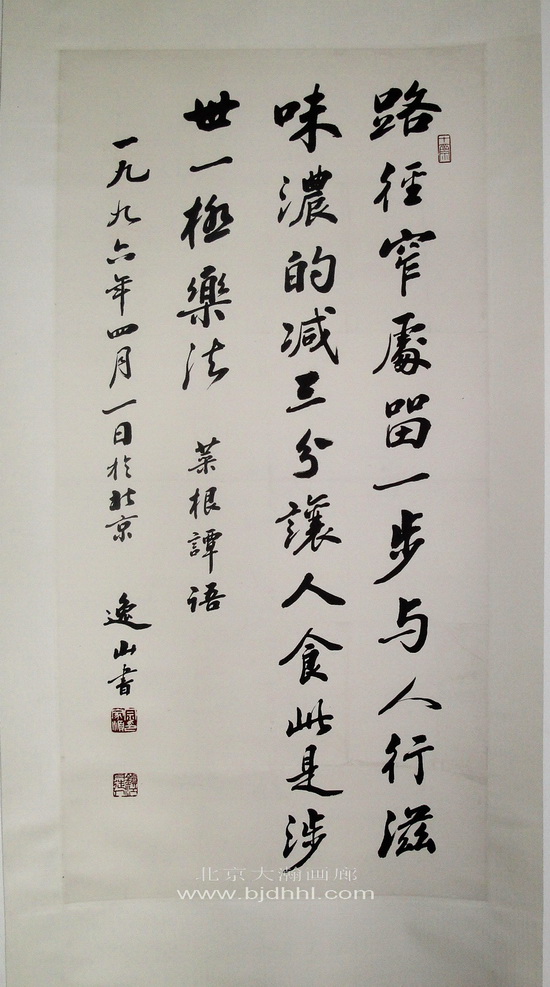 路徑窄處留一步与人行滋
味濃的减三分讓人食此是涉
世一極樂法 菜根譚语
一九九六年四月一日於北京 逸山書
北京大瀚画廊
www.bjdhhl.com